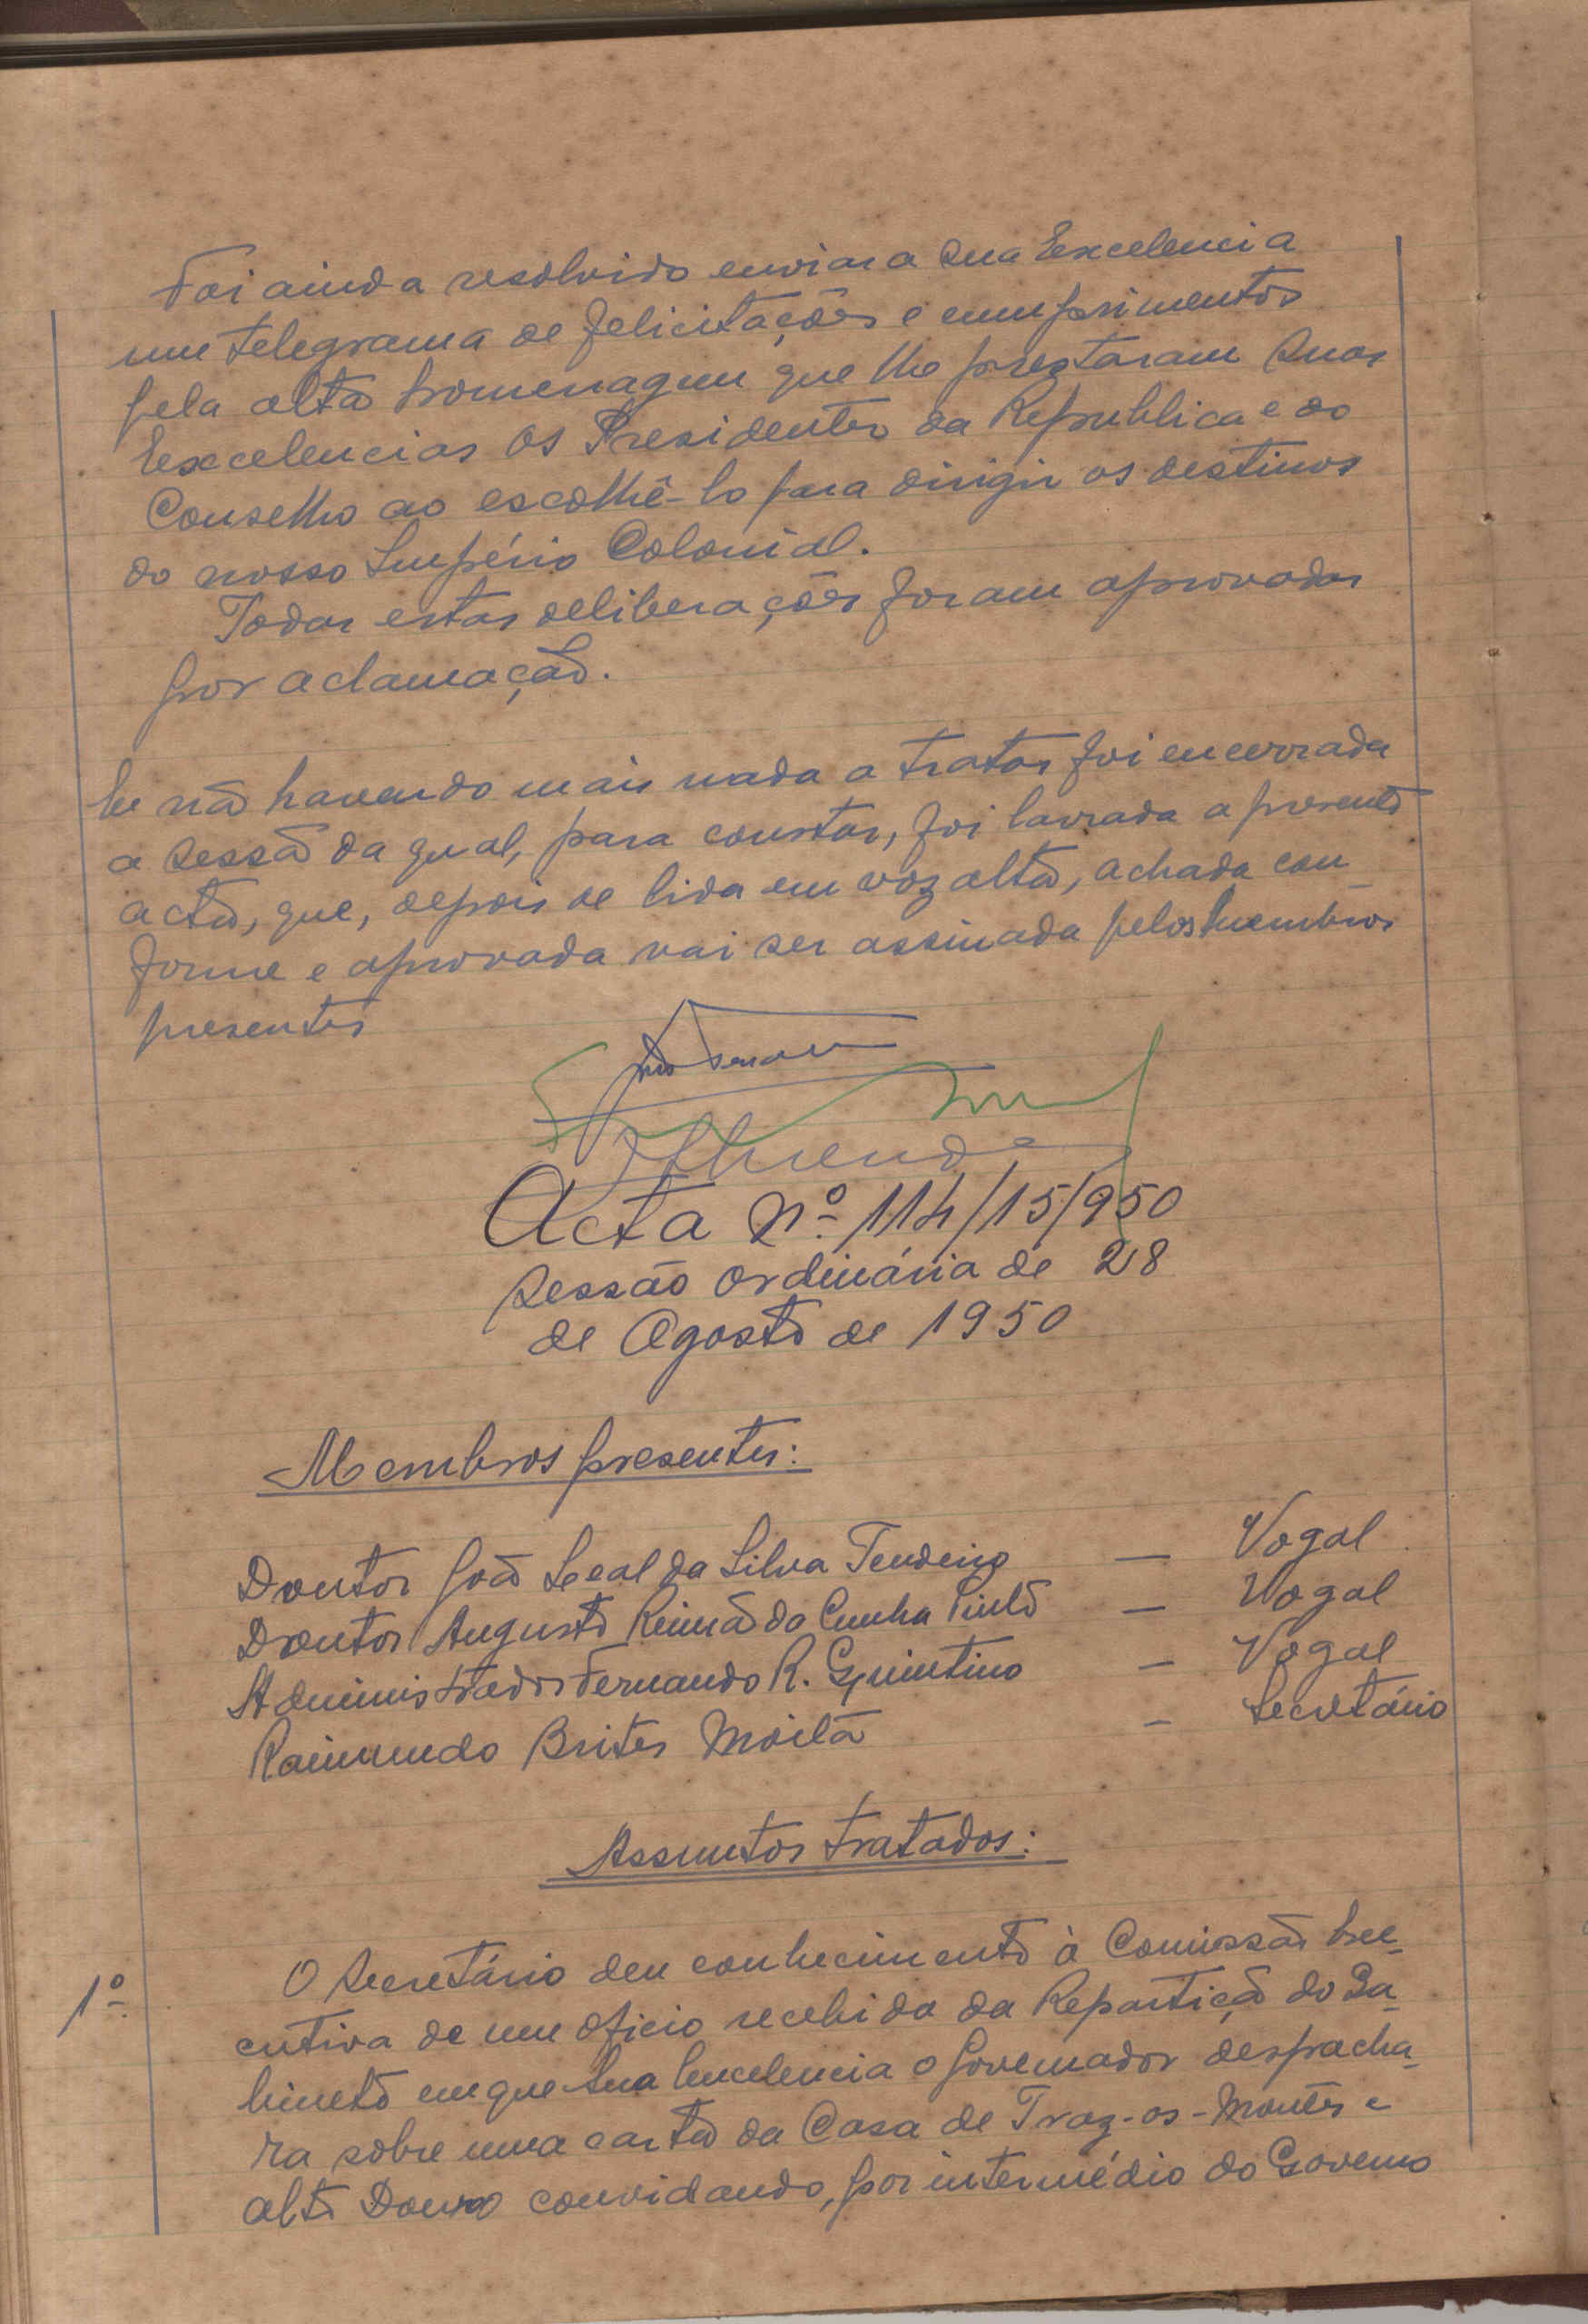 Foi ainda resolvido enviar a Sua Excelencia
um telegrama de felicitações e cumprimentos
pela alta homenagem que lhe prestaram Suas
Excelencias Os Presidentes da Republica e do
Conselho ao escolhê-lo para dirigir os destinos
do nosso Império Colonial.
Todas estas deliberações foram aprovadas
por aclamação.
E não havendo mais nada a tratar foi encerrada
a sessão da qual, para constar, foi lavrada a presente
acta, que, depois de lida em voz alta, achada con_
forme e aprovada vai ser assinada pelos membros
presentes
Acta Nº 114/15/950
Sessão Ordinária de 28
de Agosto de 1950
Membros presentes:
Doutor João Leal da Silva Tendeiro — Vogal
Doutor Augusto Reimão da Cunha Pinto — Vogal
Administrador Fernando R. Quintino — Vogal
Raimundo Brites Moita — Secretário
Assuntos tratados:
1º O Secretário deu conhecimento à Comissão Exe_
cutiva de um oficio recebido da Repartição do Ga_
binete em que Sua Excelencia o Governador despacha_
ra sobre uma carta da Casa de Traz-os-Montes e
alto Douro convidando, por intermédio do Governo